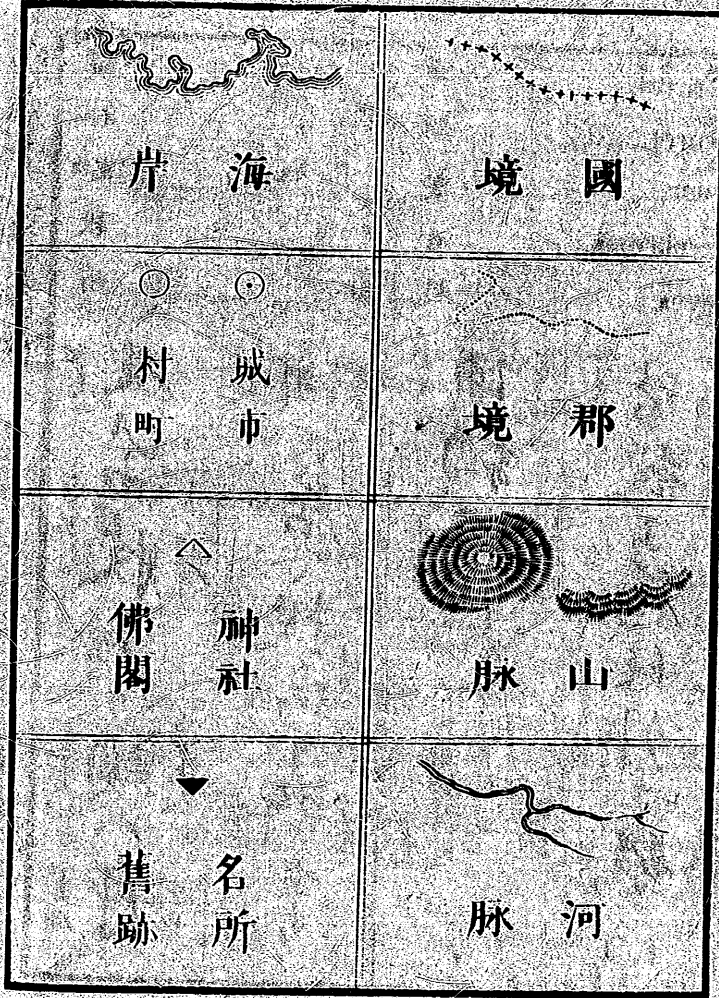 國境
郡境
山脉
河脉
海岸
城市
村町
神社
佛閣
名所
舊跡